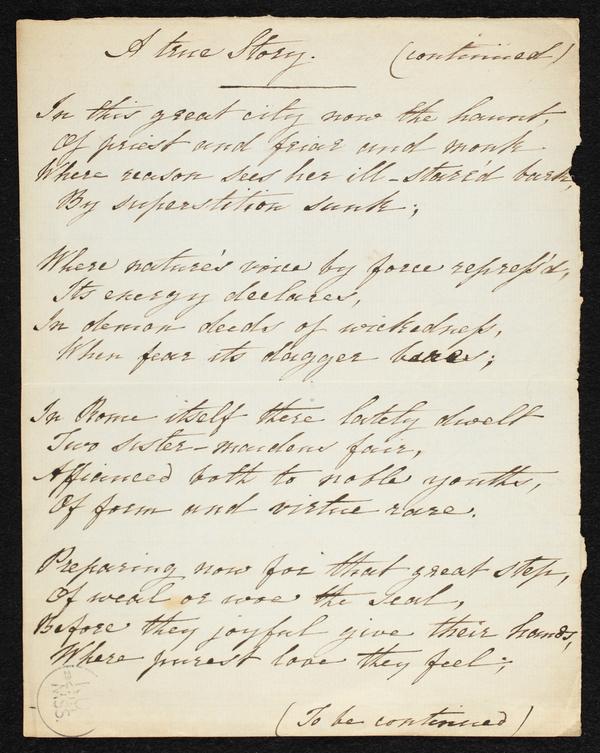 A true Story. (continued)
In this great city now the haunt,
Of priest and friar and monk
Where reason sees her ill-starr'd bark,
By superstition sunk;
Where nature's voice by force repress'd,
Its energy declares,
In demon deeds of wickedness,
When fear its dagger bares;
In Rome itself there lately dwelt
Two sister-maidens fair,
Affianced both to noble youths,
Of form and virtue rare.
Preparing now for that great step,
Of weal or woe the seal,
Before they joyful give their hands,
Where purest love they feel;
(To be continued)